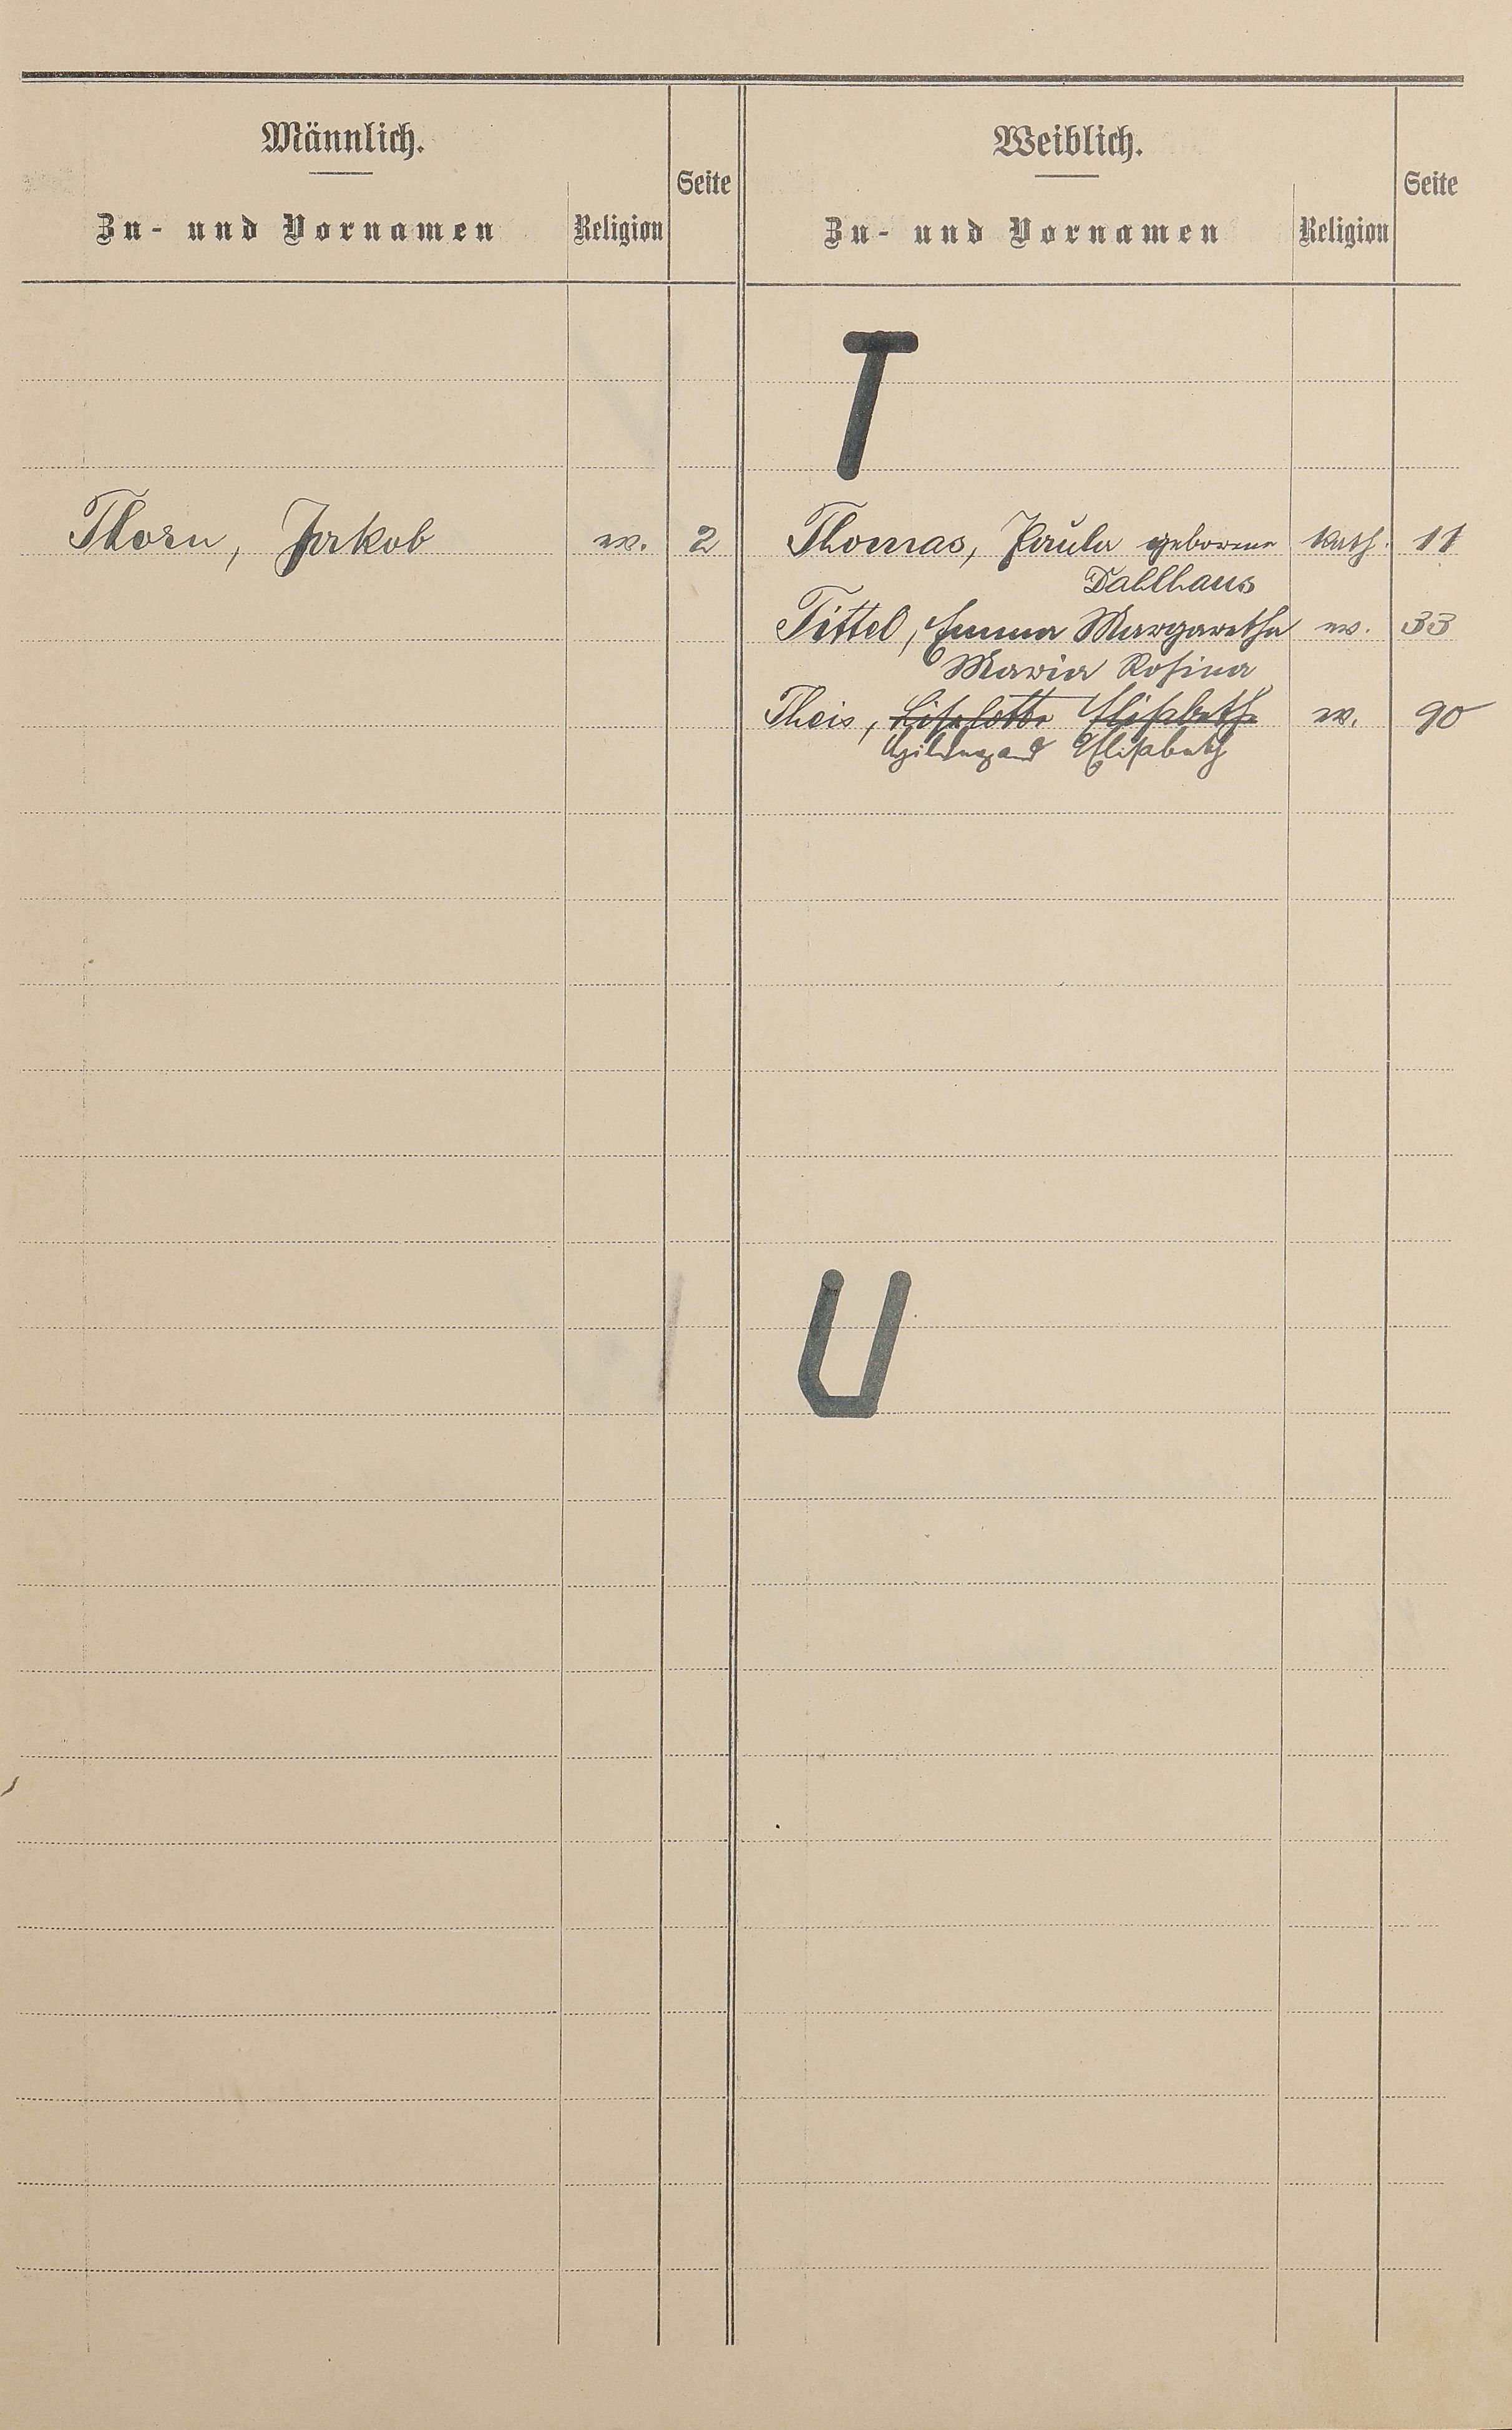 Männlich.
Zu- und Vornamen Religion Seite
Weiblich.
Zu- und Vornamen Religion Seite
T
Thorn, Jakob ev. 2
Thomas, Paula geborene kath. 11
Dahlhaus
Tittel, Emma Margaretha ev. 33
Maria Rosina
Theis, Liselotte Elisabeth ev. 90
Hildegard Elisabeth
U